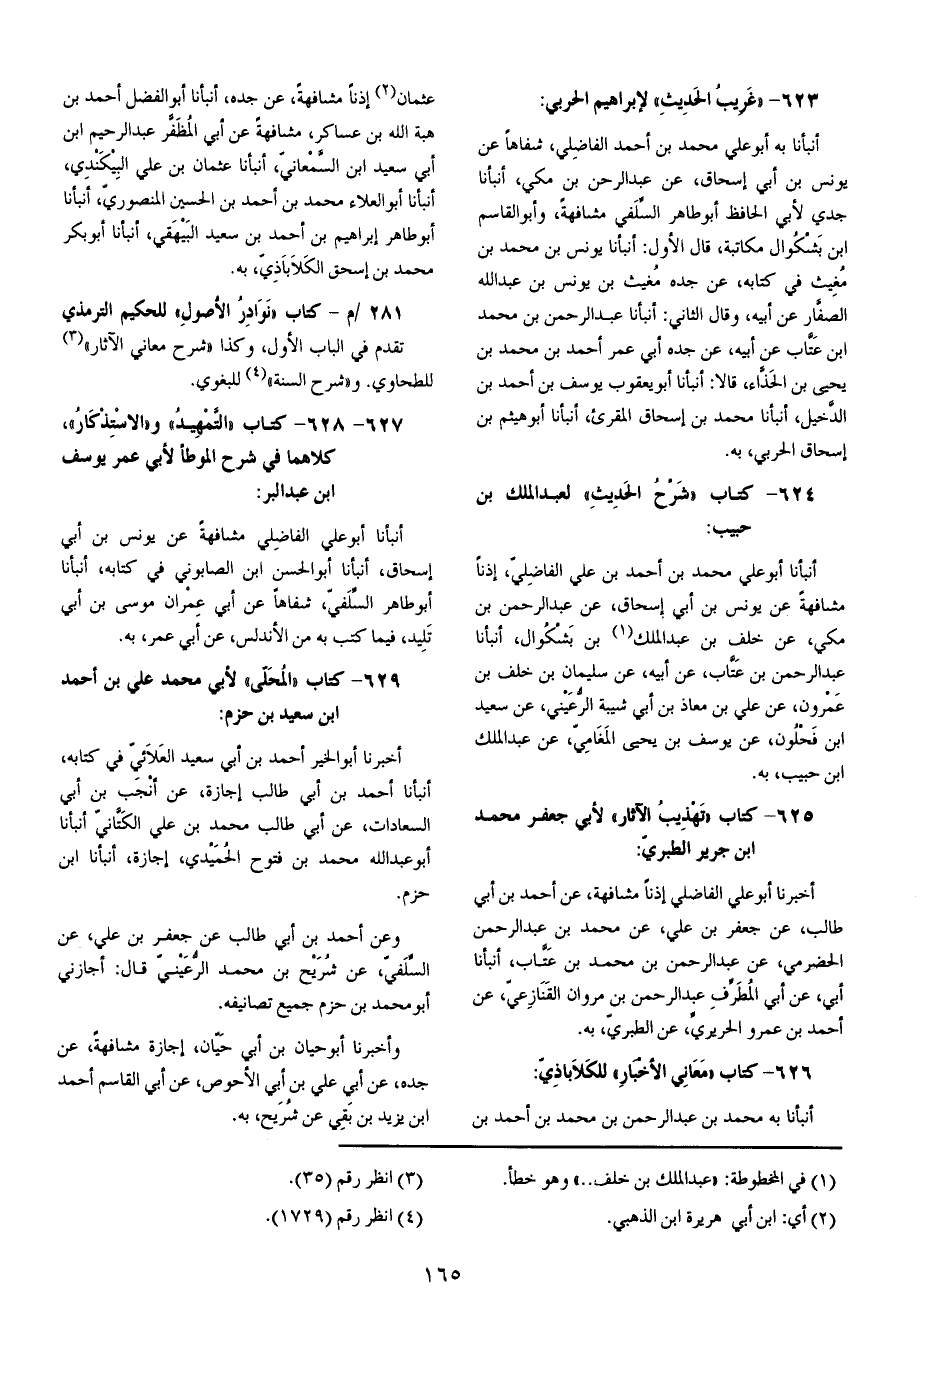 ٦٢٣- «غَرِيبُ الحَدِيثِ» لإبراهيم الحربي:
أنبأنا به أبوعلي محمد بن أحمد الفاضلي، شفاهاً عن
يونس بن أبي إسحاق، عن عبدالرحن بن مكي، أنبأنا
جدي لأبي الحافظ أبوطاهر السِّلَفي مشافهةً، وأبوالقاسم
ابن بَشْكُوال مكاتبة، قال الأول: أنبأنا يونس بن محمد بن
مُغِيث في كتابه، عن جده مُغيث بن يونس بن عبدالله
الصفَّار عن أبيه، وقال الثاني: أنبأنا عبدالرحمن بن محمد
ابن عَتَّاب عن أبيه، عن جده أبي عمر أحمد بن محمد بن
يحيى بن الحَذَّاء، قالا: أنبأنا أبويعقوب يوسف بن أحمد بن
الدَّخيل، أنبأنا محمد بن إسحاق المقرئ، أنبأنا أبوهيثم بن
إسحاق الحربي، به.
٦٢٤- كتاب «شَرْحُ الحَدِيثِ» لعبدالملك بن
حبيب:
أنبأنا أبوعلي محمد بن أحمد بن علي الفاضِليّ، إذناً
مشافهةً عن يونس بن أبي إسحاق، عن عبدالرحمن بن
مكي، عن خلف بن عبدالملك(١) بن بَشْكُوال، أنبأنا
عبدالرحمن بن عَتَّاب، عن أبيه، عن سليمان بن خلف بن
عَمْرون، عن علي بن معاذ بن أبي شيبة الرُّعَيْني، عن سعيد
ابن فَحْلُون، عن يوسف بن يحيى المَغَامِيّ، عن عبدالملك
ابن حبيب، به.
٦٢٥- كتاب «تَهْذِيبُ الآثار» لأبي جعفر محمد
ابن جرير الطبريّ:
أخبرنا أبوعلي الفاضلي إذناً مشافهة، عن أحمد بن أبي
طالب، عن جعفر بن علي، عن محمد بن عبدالرحمن
الحضرمي، عن عبدالرحمن بن محمد بن عَتَّاب، أنبأنا
أبي، عن أبي المُطَرِّفِ عبدالرحمن بن مروان القَنَازِعيّ، عن
أحمد بن عمرو الحريريِّ، عن الطبريّ، به.
٦٢٦- كتاب «مَعَاني الأخْبَارِ» للكَلاَباذِيّ:
أنبأنا به محمد بن عبدالرحمن بن محمد بن أحمد بن
عثمان(٢) إذناً مشافهةً، عن جده، أنبأنا أبوالفضل أحمد بن
هبة الله بن عساكر، مشافهةً عن أبي المُظَفَّر عبدالرحيم ابن
أبي سعيد ابن السَّمْعانيّ، أنبأنا عثمان بن علي البِيْكَنْدِي،
أنبأنا أبوالعلاء محمد بن أحمد بن الحسين المنصوريّ، أنبأنا
أبوطاهر إبراهيم بن أحمد بن سعيد البَيْهَقي، أنبأنا أبوبكر
محمد بن إسحق الكَلاَبَاذِيّ، به.
٢٨١ /م - كتاب «نَوَادِرُ الأصولِ» للحكيم الترمذي
تقدم في الباب الأول، وكذا «شرح معاني الآثار»(٣)
للطحاوي. و«شرح السنة»(٤) للبغوي.
٦٢٧- ٦٢٨- كتاب «التَّمْهِيدُ» و«الاسْتِذْكَارُ»،
كلاهما في شرح الموطأ لأبي عمر يوسف
ابن عبدالبر:
أنبأنا أبوعلي الفاضلي مشافهةً عن يونس بن أبي
إسحاق، أنبأنا أبوالحسن ابن الصابوني في كتابه، أنبأنا
أبوطاهر السِّلَفيّ، شفاهاً عن أبي عِمْران موسى بن أبي
تَلِيد، فيما كتب به من الأندلس، عن أبي عمر، به.
٦٢٩- كتاب «المُحَلّى» لأبي محمد علي بن أحمد
ابن سعيد بن حزم:
أخبرنا أبوالخير أحمد بن أبي سعيد العَلاَئيّ في كتابه،
أنبأنا أحمد بن أبي طالب إجازة، عن أنْجَب بن أبي
السعادات، عن أبي طالب محمد بن علي الكَتَّانيّ أنبأنا
أبوعبدالله محمد بن فتوح الحُمَيْدي، إجازة، أنبأنا ابن
حزم.
وعن أحمد بن أبي طالب عن جعفر بن علي، عن
السِّلَفيّ، عن شُرَيْح بن محمد الرُّعَيْنيّ قال: أجازني
أبومحمد بن حزم جميع تصانيفه.
وأخبرنا أبوحيان بن أبي حَيّان، إجازة مشافهةً، عن
جده، عن أبي علي بن أبي الأحوص، عن أبي القاسم أحمد
ابن يزيد بن بَقي عن شُرَيح، به.
(١) في المخطوطة: «عبدالملك بن خلف..» وهو خطأ.
(٢) أي: ابن أبي هريرة ابن الذهبي.
(٣) انظر رقم (٣٥).
(٤) انظر رقم (١٧٢٩).
١٦٥